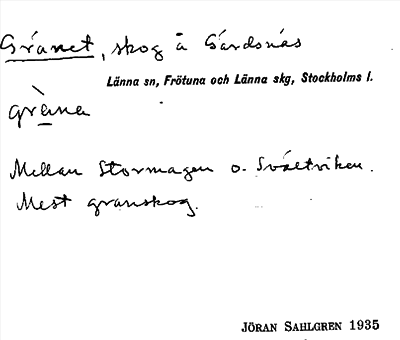 Gránet, skog å Gårdsnäs
Länna sn, Frötuna och Länna skg, Stockholms l.
gràna
Mellan Stormagen o. Sväetviken.
Mest granskog.
JÖRAN SAHLGREN 1935